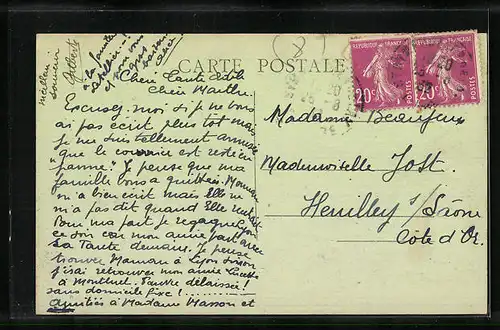 CARTE POSTALE
REPUBLIQUE FRANÇAISE
20c
POSTES
REPUBLIQUE FRANÇAISE
20c
POSTES
meilleur
souvenir
Albert
à la famille
et
vous
Chère Tante
Chère Marthe
Excusez-moi si je ne vous
ai pas écrit plus tôt mais
je me suis tellement amusée
"que le courrier est resté en
panne". Je pense que ma
famille vous a quittés. Maman
m'a bien écrit mais Elle ne
m'a pas dit quand Elle
Pour ma part je regagne Lyon
ce soir car mon amie part avec
sa Tante demain. Je pense
trouver Maman à Lyon sinon
j'irai retrouver mon amie
à Montluel. Pauvre délaissée!
sans domicile fixe!
amitiés à Madame Masson et
Madame Beaujeux
Mademoiselle Jost.
Heuilley s/ Saône
Côte d'Or.